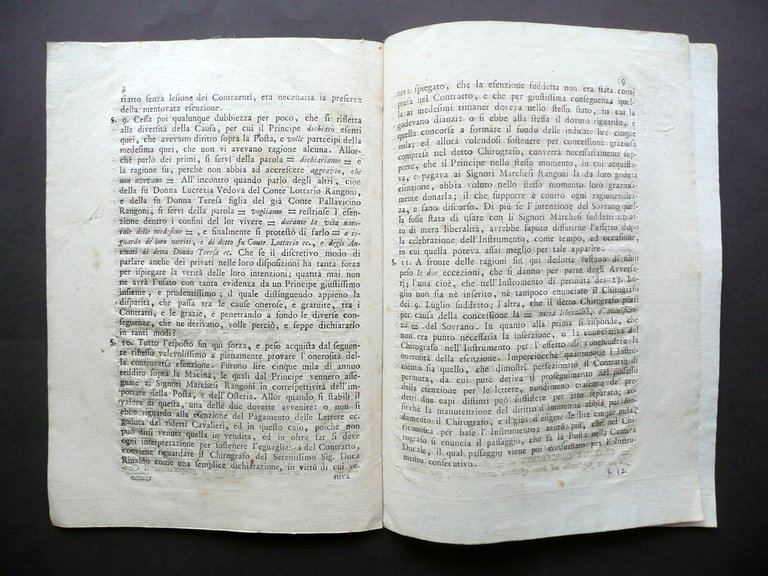 8
tratto senza lesione dei Contraenti, era necessaria la preserva
della mentovata esenzione.
§. 9. Cessa poi qualunque dubbiezza per poco, che si rifletta
alla diversità della Causa, per cui il Principe dichiarò esenti
quei, che avevano diritto sopra la Posta, e volle partecipi della
medesima quei, che non vi avevano ragione alcuna. Allor-
chè parlò dei primi, si servì della parola = dichiariamo = e
la ragione fu, perchè non abbia ad accrescere aggravio, che
non avevano = All'incontro quando parlò degli altri, cioè
della fu Donna Lucrezia Vedova del Conte Lottario Rangoni,
e della Donna Teresa figlia del già Conte Pallavicino
Rangoni; si servì della parola = vogliamo = restrinse l'esen-
zione dentro i confini del lor vivere = durante la vita natu-
rale delle medesime =, e finalmente si protestò di farlo = a ri-
guardo de loro meriti, e di detto fu Conte Lottario ec., e degli An-
tenati di detta Donna Teresa ec. Che se il discretivo modo di
parlare anche dei privati nelle loro disposizioni ha tanta forza
per ispiegare la verità delle loro intenzioni; quanta mai non
ne avrà l'usato con tanta evidenza da un Principe giustissimo
insieme, e prudentissimo; il quale distinguendo appieno la
disparità, che passa tra le cause onerose, e gratuite, tra i
Contratti, e le grazie, e penetrando a fondo le diverse con-
seguenze, che ne derivano, volle perciò, e seppe dichiararlo
in tanti modi?
§. 10. Tutto l'esposto fin qui forza, e peso acquista dal seguen-
te riflesso valevolissimo a pienamente provare l'onerosità del-
la controversa esenzione. Furono lire cinque mila di annuo
reddito sopra la Macina, le quali dal Principe vennero asse-
gnate ai Signori Marchesi Rangoni in correspettività dell'im-
portare della Posta, e dell'Osteria. Allor quando si stabilì il
valore di questa, una delle due dovette avvenire: o non si
ebbe riguardo alla esenzione del Pagamento delle Lettere ec.
goduta dai ridetti Cavalieri, ed in questo caso, poichè non
può dirsi venuta quella in vendita, ed in oltre far si deve
ogni interpretazione per sostenere l'eguaglianza del Contratto,
conviene riguardare il Chirografo del Serenissimo Sig. Duca
Rinaldo come una semplice dichiarazione, in virtù di cui ve-
niva
9
spiegato, che la esenzione suddetta non era stata com-
presa nel Contratto, e che per giustissima conseguenza quel-
la ai medesimi rimaner doveva nello stesso stato, in cui la
godevano dianzi: o si ebbe alla stessa il dovuto riguardo, e
quella concorse a formare il fondo delle indicate lire cinque
mila; ed allora volendosi sostenere per concessione graziosa
compresa nel detto Contratto, converrà necessariamente sup-
porre, che il Principe nello stesso momento, in cui acquista-
va, e pagava ai Signori Marchesi Rangoni la da loro goduta
esenzione, abbia voluto nello stesso momento loro graziosa-
mente donarla; il che supporre è contro ogni ragionevolez-
za, e sano discorso. Di più se l'intenzione del Sovrano quel-
la fosse stata di usare con li Signori Marchesi suddetti un at-
to di mera liberalità, avrebbe saputo differirne l'effetto dopo
la celebrazione dell'Instromento, come tempo, ed occasione,
in cui quella poteva assai meglio per tale apparire.
§. 11. A fronte delle ragioni sin quì dedotte restano di niun
peso le due eccezioni, che si danno per parte degli Avversa-
rj; l'una cioè, che nell'Instromento di permuta dei 23. Lu-
glio non sia nè inserto, nè tampoco enunciato il Chirografo
dei 9. Luglio suddetto; l'altra, che il detto Chirografo porti
per causa della concessione la = mera liberalità, o munificen-
za = del Sovrano. In quanto alla prima si risponde, che
non era punto necessaria la inserzione, o la enunciativa del
Chirografo nell'Instromento per l'effetto di conchiudere la
onerosità della esenzione. Imperciocchè quantunque l'Instru-
mento sia quello, che dimostri perfezionato il Contratto di
permuta, da cui pure deriva il proseguimento nel possesso
della esenzione per le lettere, nondimeno ciascuno de' pre-
detti due capi distinti può sussistere per atto separato; co-
sicchè la manutenzione del diritto d'immunità abbia per fon-
damento il Chirografo, e il gius di esigere le lire cinque mila,
riconosca per base l'Instromento; tanto più, che nel Chi-
rografo si enuncia il passaggio, che fa la Posta nella Camera
Ducale, il qual passaggio viene poi confermato per l'Instru-
mento consecutivo.
§. 12.